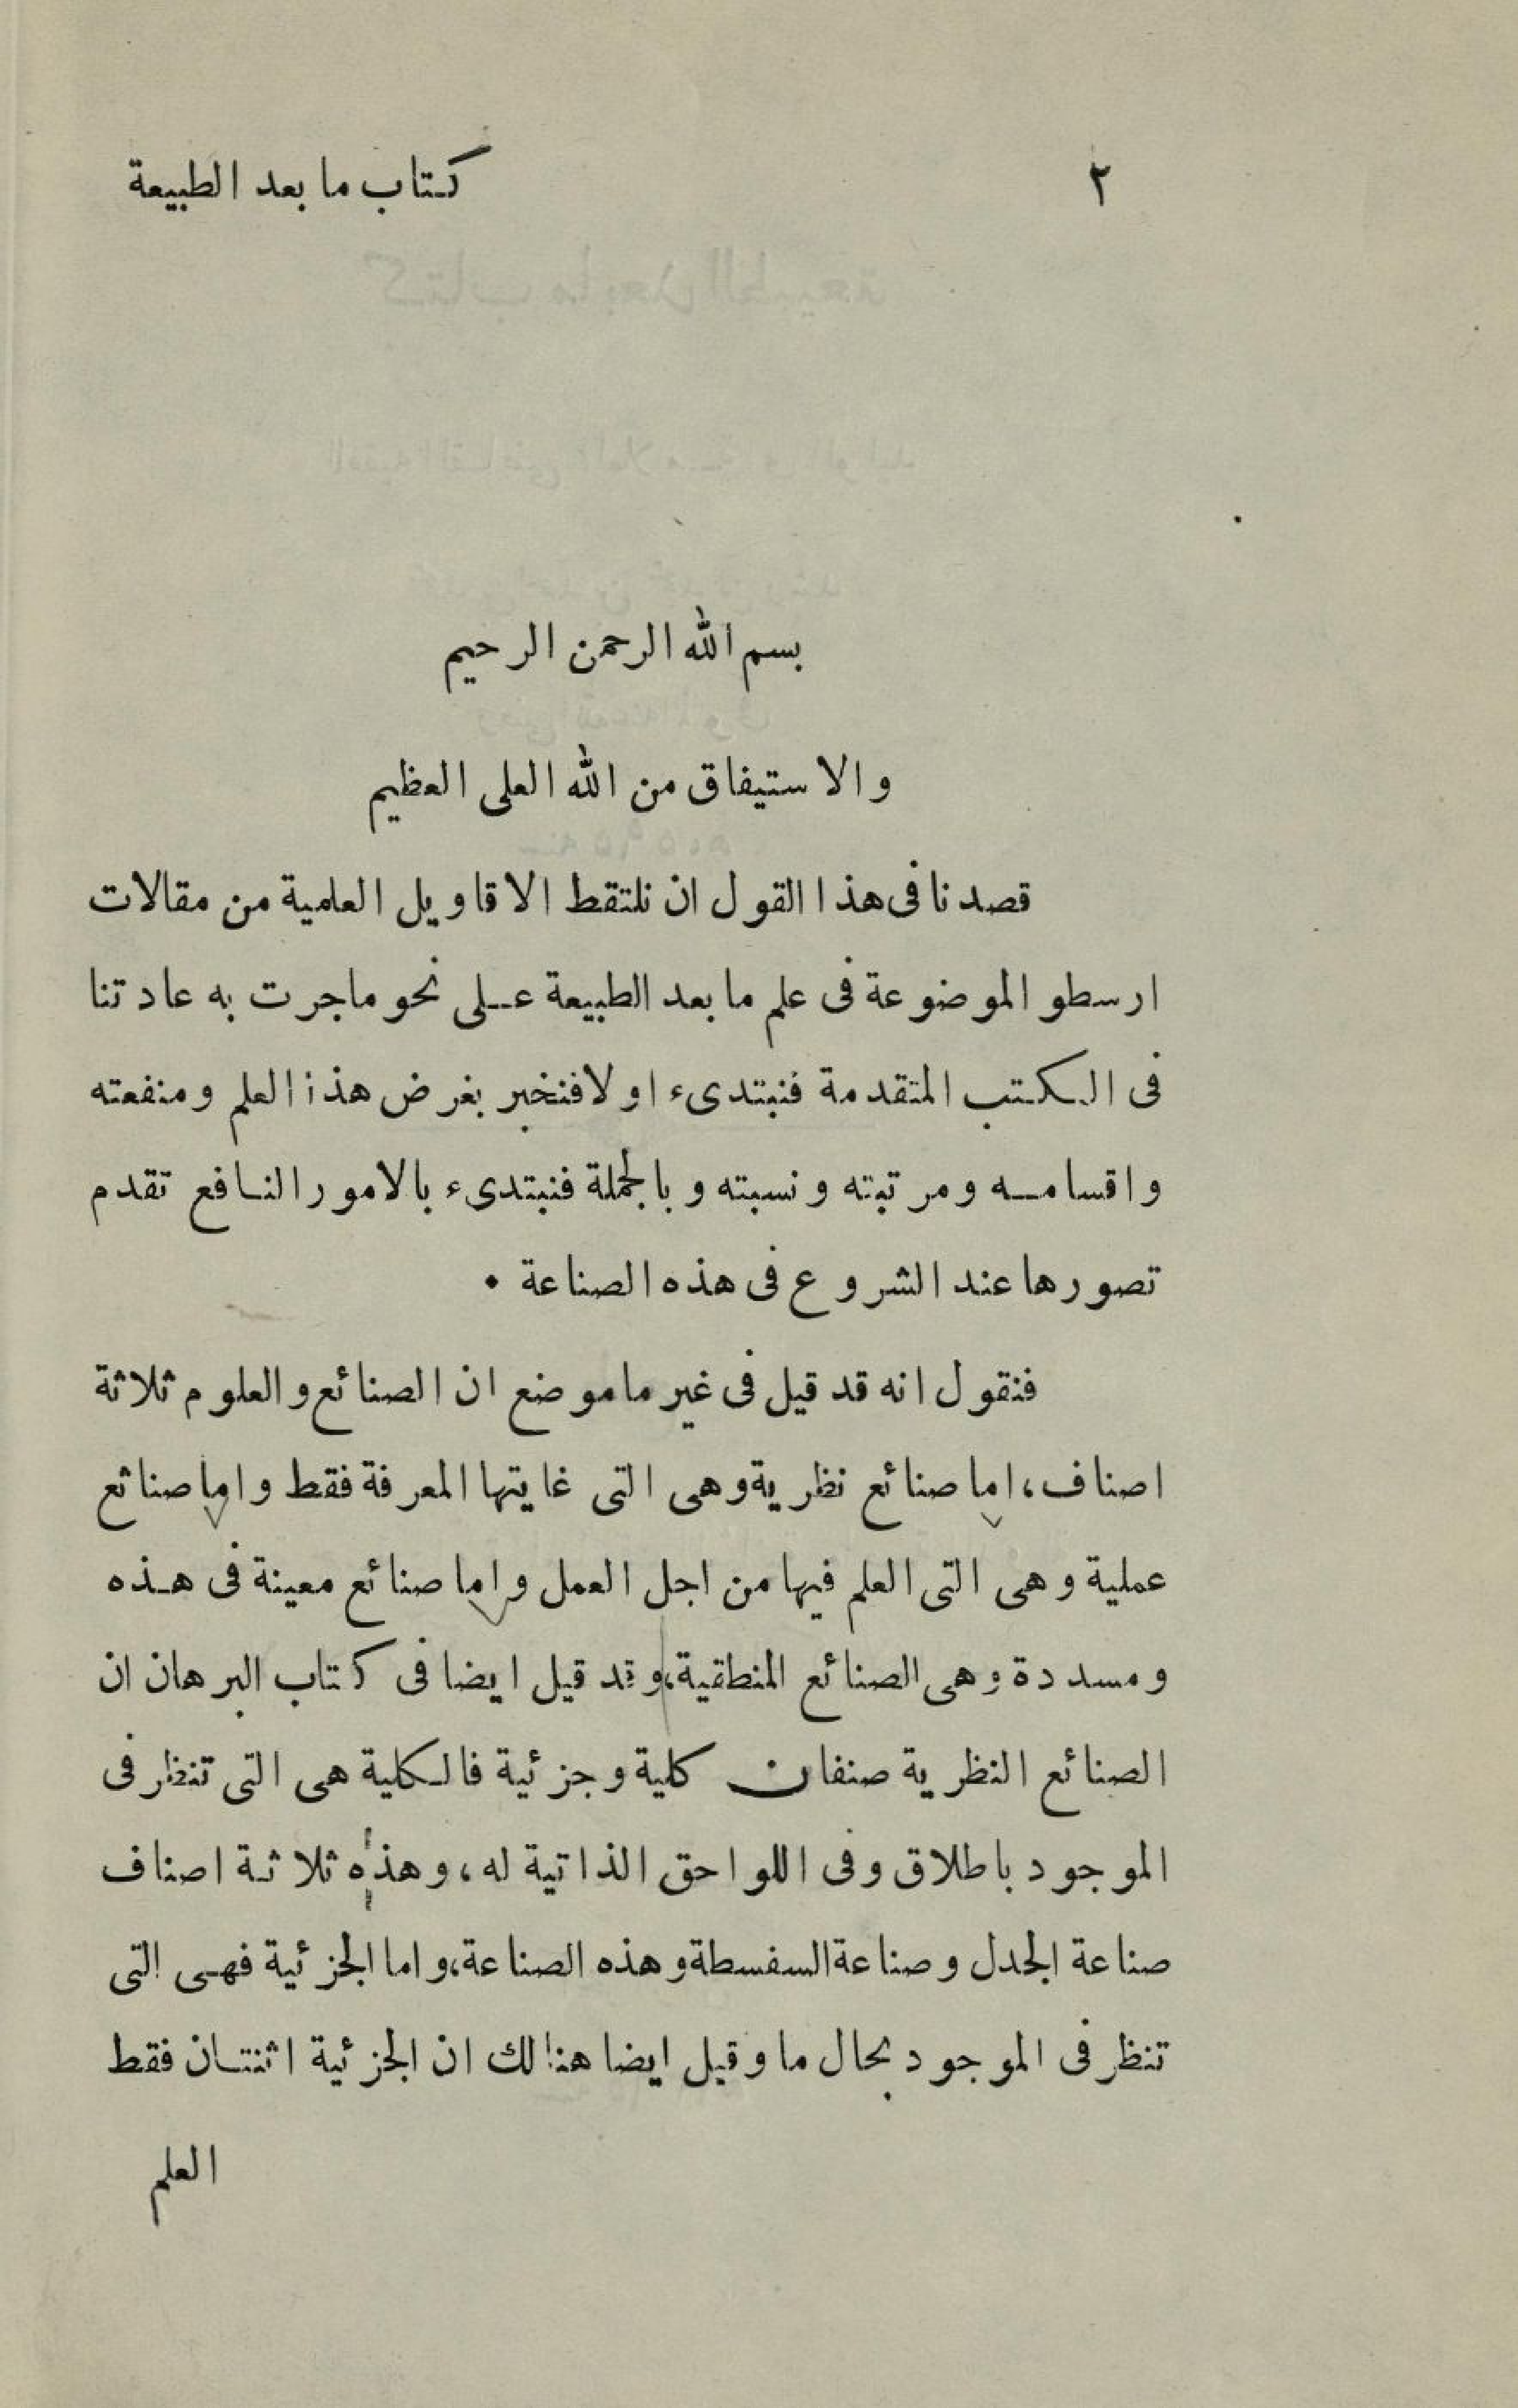 ٢ كتاب ما بعد الطبيعة
بسم الله الرحمن الرحيم
والاستيفاق من الله العلى العظيم
قصدنا فى هذا القول ان نلتقط الاقاويل العلمية من مقالات
ارسطو الموضوعة فى علم ما بعد الطبيعة على نحو ما جرت به عادتنا
فى الكتب المتقدمة فنبتدىء اولا فنخبر بغرض هذا العلم ومنفعته
واقسامه ومرتبته ونسبته وبالجملة فنبتدىء بالامور النافع تقدم
تصورها عند الشروع فى هذه الصناعة •
فنقول انه قد قيل فى غير ما موضع ان الصنائع والعلوم ثلاثة
اصناف، اما صنائع نظرية وهى التى غايتها المعرفة فقط واما صنائع
عملية وهى التى العلم فيها من اجل العمل واما صنائع معينة فى هذه
ومسددة وهى الصنائع المنطقية، وقد قيل ايضا فى كتاب البرهان ان
الصنائع النظرية صنفان كلية وجزئية فالكلية هى التى تنظر فى
الموجود باطلاق وفى اللواحق الذاتية له، وهذه ثلاثة اصناف
صناعة الجدل وصناعة السفسطة وهذه الصناعة، واما الجزئية فهى التى
تنظر فى الموجود بحال ما وقيل ايضا هنالك ان الجزئية اثنتان فقط
العلم